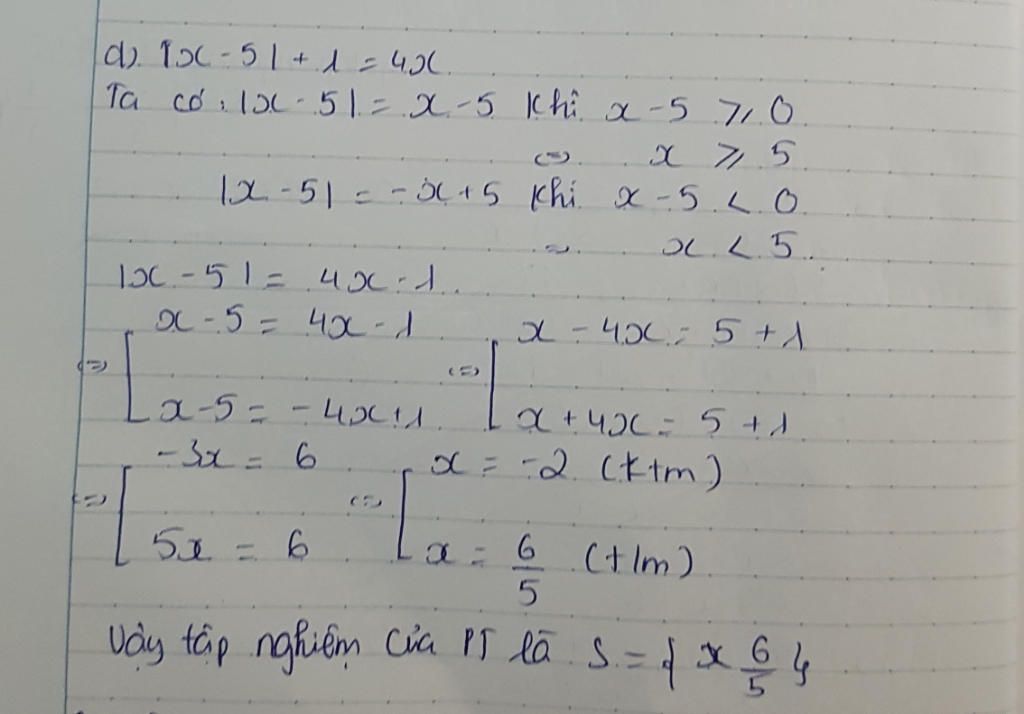 d). |x - 5| + 1 = 4x
Ta có: |x - 5| = x - 5 khi x - 5 ⩾ 0
<=> x ⩾ 5
|x - 5| = -x + 5 khi x - 5 < 0
= x < 5
|x - 5| = 4x - 1
x - 5 = 4x - 1 x - 4x = 5 + 1
<=> [ <=> [
x - 5 = -4x + 1 x + 4x = 5 + 1
-3x = 6 x = -2 (ktm)
<=> [ <=> [
5x = 6 x = 6/5 (tm)
Vậy tập nghiệm của PT là S = { x 6/5 }